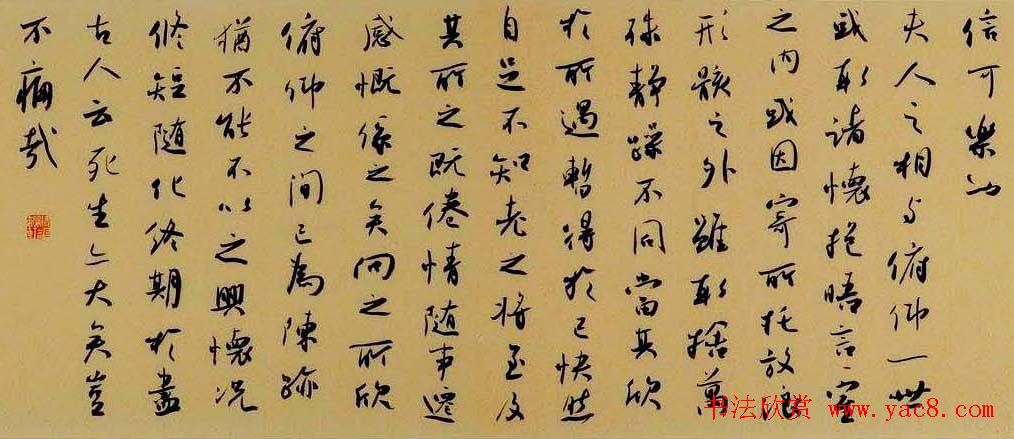 信可樂也
夫人之相与俯仰一世
或取諸懷抱晤言一室
之内或因寄所托放浪
形骸之外雖取捨萬
殊静躁不同當其欣
於所遇暫得於己快然
自足不知老之將至及
其所之既倦情随事遷
感慨係之矣向之所欣
俯仰之間已為陳跡
猶不能不以之興懷况
修短随化終期於盡
古人云死生亦大矣豈
不痛哉
书法欣赏 www.yac8.com